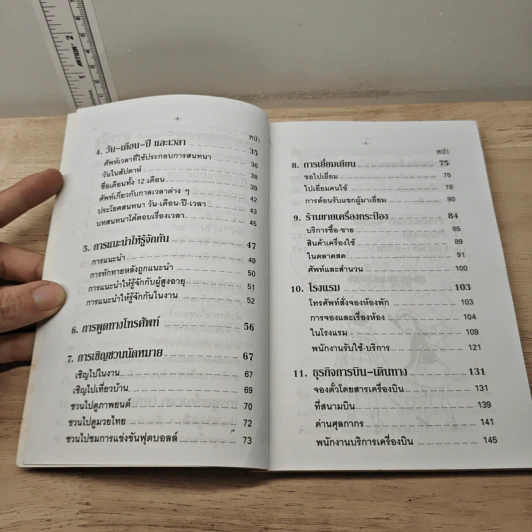 หน้า
4. วัน-เดือน-ปี และเวลา 35
ศัพท์เวลาที่ใช้ประกอบการสนทนา 36
วันในสัปดาห์ 38
ชื่อเดือนทั้ง 12 เดือน 39
ศัพท์เกี่ยวกับกาลเวลาต่าง ๆ 42
ประโยคสนทนา วัน-เดือน-ปี-เวลา 43
บทสนทนาโต้ตอบเรื่องเวลา 45
5. การแนะนำให้รู้จักกัน 47
การแนะนำ 49
การทักทายหลังถูกแนะนำ 50
การแนะนำให้รู้จักกับผู้สูงอายุ 51
การแนะนำให้รู้จักกันในงาน 52
6. การพูดทางโทรศัพท์ 56
7. การเชิญชวนนัดหมาย 67
เชิญไปในงาน 67
เชิญไปเที่ยวบ้าน 69
ชวนไปดูภาพยนต์ 70
ชวนไปดูมวยไทย 72
ชวนไปชมการแข่งขันฟุตบอลล์ 73
หน้า
8. การเยี่ยมเยียน 75
ขอไปเยี่ยม 75
ไปเยี่ยมคนไข้ 78
การต้อนรับแขกผู้มาเยี่ยม 80
9. ร้านขายเครื่องกระป๋อง 84
บริการซื้อ-ขาย 85
สินค้าเครื่องใช้ 89
ในตลาดสด 91
ศัพท์และสำนวน 100
10. โรงแรม 103
โทรศัพท์สั่งจองห้องพัก 103
การจองและเรื่องห้อง 104
ในโรงแรม 109
พนักงานรับใช้-บริการ 121
11. ธุรกิจการบิน-เดินทาง 131
จองตั๋วโดยสารเครื่องบิน 131
ที่สนามบิน 139
ด่านศุลกากร 141
พนักงานบริการเครื่องบิน 145